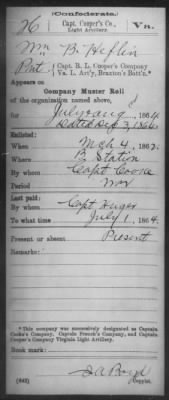 (Confederate.)
H Capt. Cooper's Co., Va.
Light Artillery.
Wm B. Heflin
Pvt, Capt. R. L. Cooper's Company
Va. L. Art'y, Braxton's Batt'n.*
Appears on
Company Muster Roll
of the organization named above,
for July & Aug, 1864.
Dated
Enlisted:
When Mch 4, 1862.
Where B. Station
By whom Capt Cooke
Period War
Last paid:
By whom Capt Huger
To what time July 1, 1864.
Present or absent Present
Remarks:
*This company was successively designated as Captain
Cooke's Company, Captain French's Company, and Captain
Cooper's Company Virginia Light Artillery.
Book mark:
(642)
Boyd
Copyist.